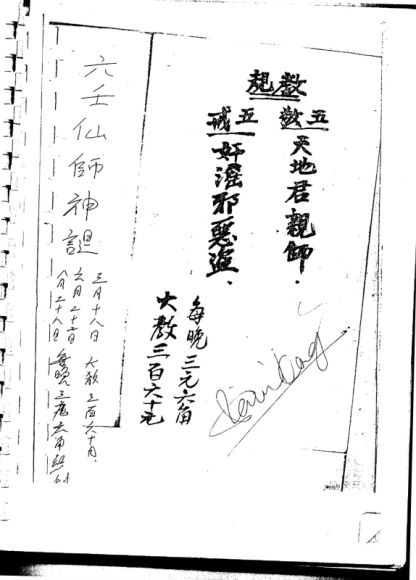 教規
五敬 天地君親師.
五戒 奸淫邪惡盜.
每晚三元六角
大教三百六十元
六壬仙師神誕
三月十八日 大教三百六十月.
六月二十二日
八月二十八日 每晚三元六角